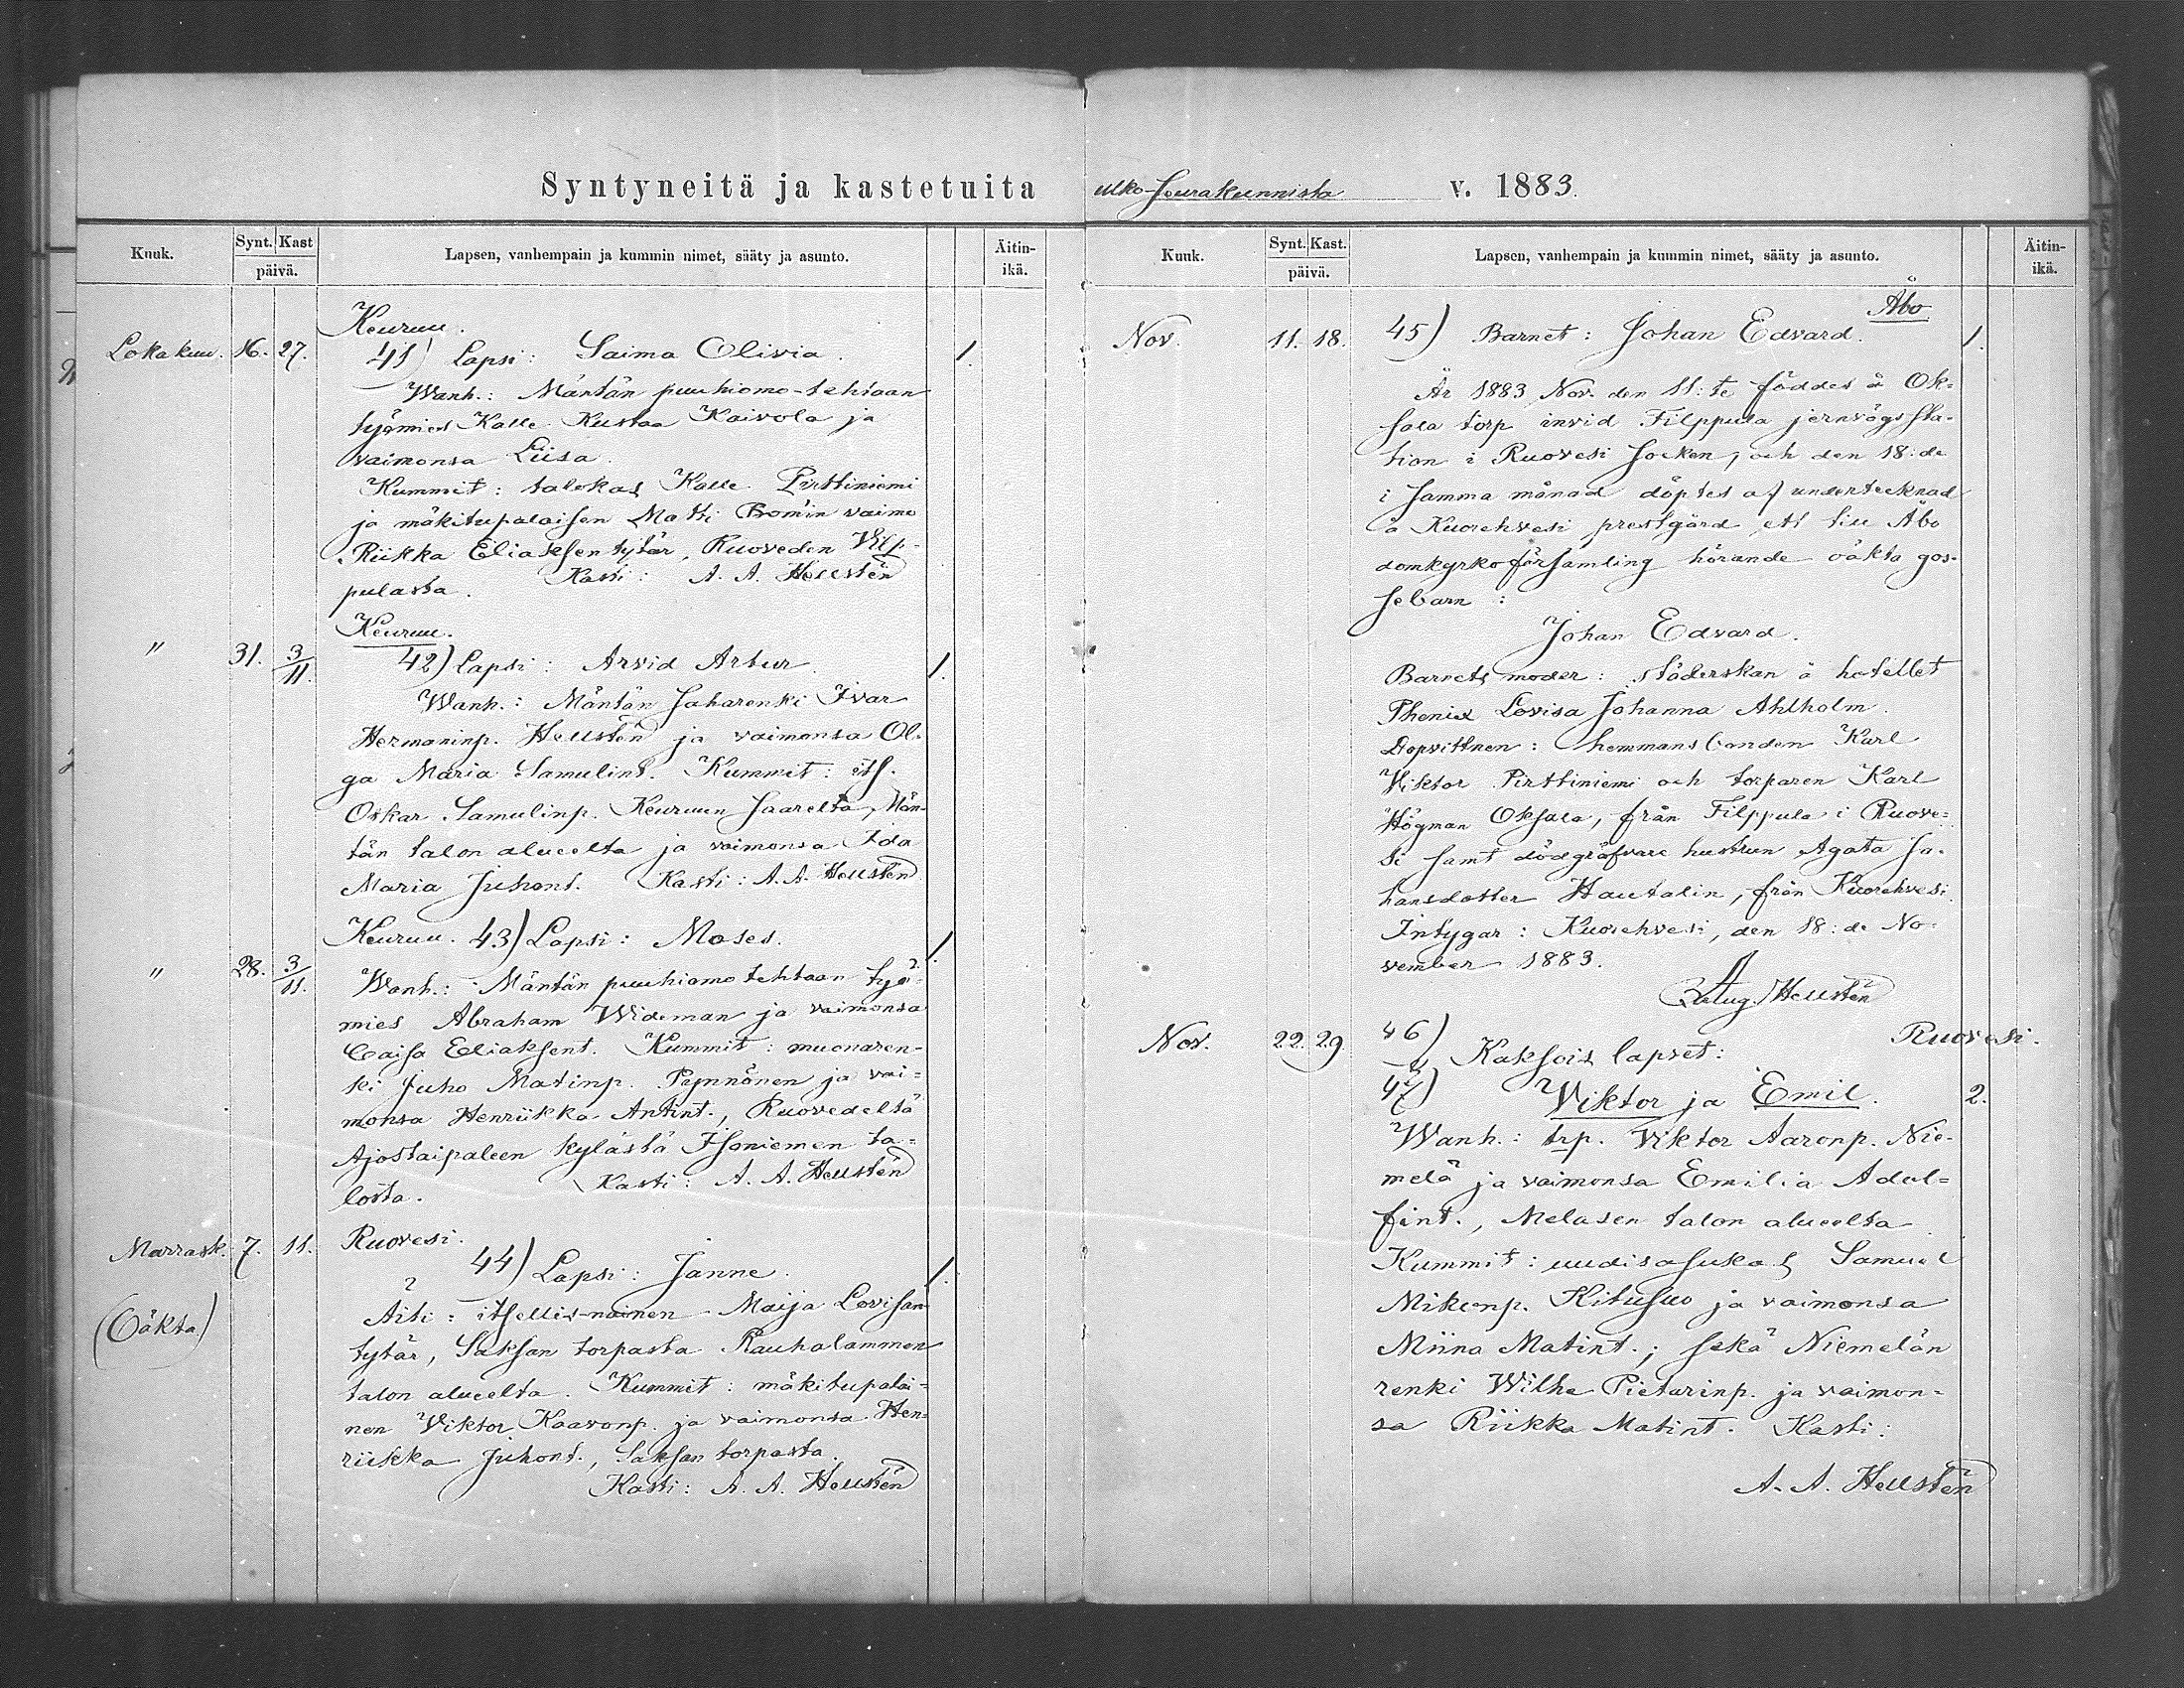 Syntyneitä ja kastetuita
Kuuk.
Synt. Kast
päivä.
Lapsen, vanhempain ja kummin nimet, sääty ja asunto.
Äitin-
ikä.
Keuruu.
Lokakuu. 16. 27. 41) Lapsi: Saima Olivia. 1.
Wanh.: Mäntän puuhiomo-tehtaan
työmies Kalle Kustaa Kaivola ja
vaimonsa Liisa.
Kummit: talokas Kalle Pirttiniemi
ja mäkitupalaisen Matti Bomin vaimo
Riikka Eliaksentytär, Ruoveden Vilp-
pulasta. Kasti: A. A. Hellstén
Keuruu.
" 31. 3/11. 42) Lapsi: Arvid Artur. 1.
Wanh.: Mäntän saharenki Ivar
Hermaninp. Hellstén ja vaimonsa Ol-
ga Maria Samulint. Kummit: its.
Oskar Samulinp. Keuruun Saarelta, Män-
tän talon alueelta ja vaimonsa Ida
Maria Juhont. Kasti: A. A. Hellstén
Keuruu. 43) Lapsi: Moses. 1.
" 28. 3/11. Wanh.: Mäntän puuhiomotehtaan työ-
mies Abraham Wideman ja vaimonsa
Caisa Eliaksent. Kummit: muonaren-
ki Juho Matinp. Pynnönen ja vai-
monsa Henriikka Antint., Ruovedeltä
Ajostaipaleen kylästä Isoniemen ta-
losta. Kasti: A. A. Hellstén
Ruovesi.
Marrask. 7. 11. 44) Lapsi: Janne. 1.
(Oäkta) Äiti: itsellis-nainen Maija Lovisan
tytär, Saksan torpasta Rauhalammen
talon alueelta. Kummit: mäkitupalai-
nen Viktor Kaavonp. ja vaimonsa Hen-
riikka Juhont., Saksan torpasta.
Kasti: A. A. Hellstén
ulko-seurakunnista v. 1883.
Kuuk.
Synt. Kast.
päivä.
Lapsen, vanhempain ja kummin nimet, sääty ja asunto.
Äitin-
ikä.
Åbo
Nov. 11. 18. 45) Barnet: Johan Edvard. 1.
År 1883 Nov. den 11:te föddes å Ok-
sala torp invid Filppula jernvägssta-
tion i Ruovesi socken, och den 18:de
i samma månad döptes af undertecknad
å Kuorehvesi prestgård ett till Åbo
domkyrkoförsamling hörande oäkta gos-
sebarn:
Johan Edvard.
Barnets moder: städerskan å hotellet
Phenix Lovisa Johanna Ahlholm.
Dopvittnen: hemmansbonden Karl
Viktor Pirttiniemi och torparen Karl
Högman Oksala, från Filppula i Ruove-
si samt dödgräfvare hustrun Agata Jo-
hansdotter Hautalin, från Kuorehvesi.
Intygar: Kuorehvesi, den 18:de No-
vember 1883.
Aug. Hellstén
Nov. 22. 29. 46) Ruovesi.
Kaksois lapset:
47) Viktor ja Emil. 2.
Wanh.: trp. Viktor Aaronp. Nie-
melä ja vaimonsa Emilia Adol-
fint., Melasen talon alueelta
Kummit: uudisasukas Samuel
Mikonp. Kitusuo ja vaimonsa
Miina Matint.; sekä Niemelän
renki Wilhe Pietarinp. ja vaimon-
sa Riikka Matint. Kasti:
A. A. Hellstén